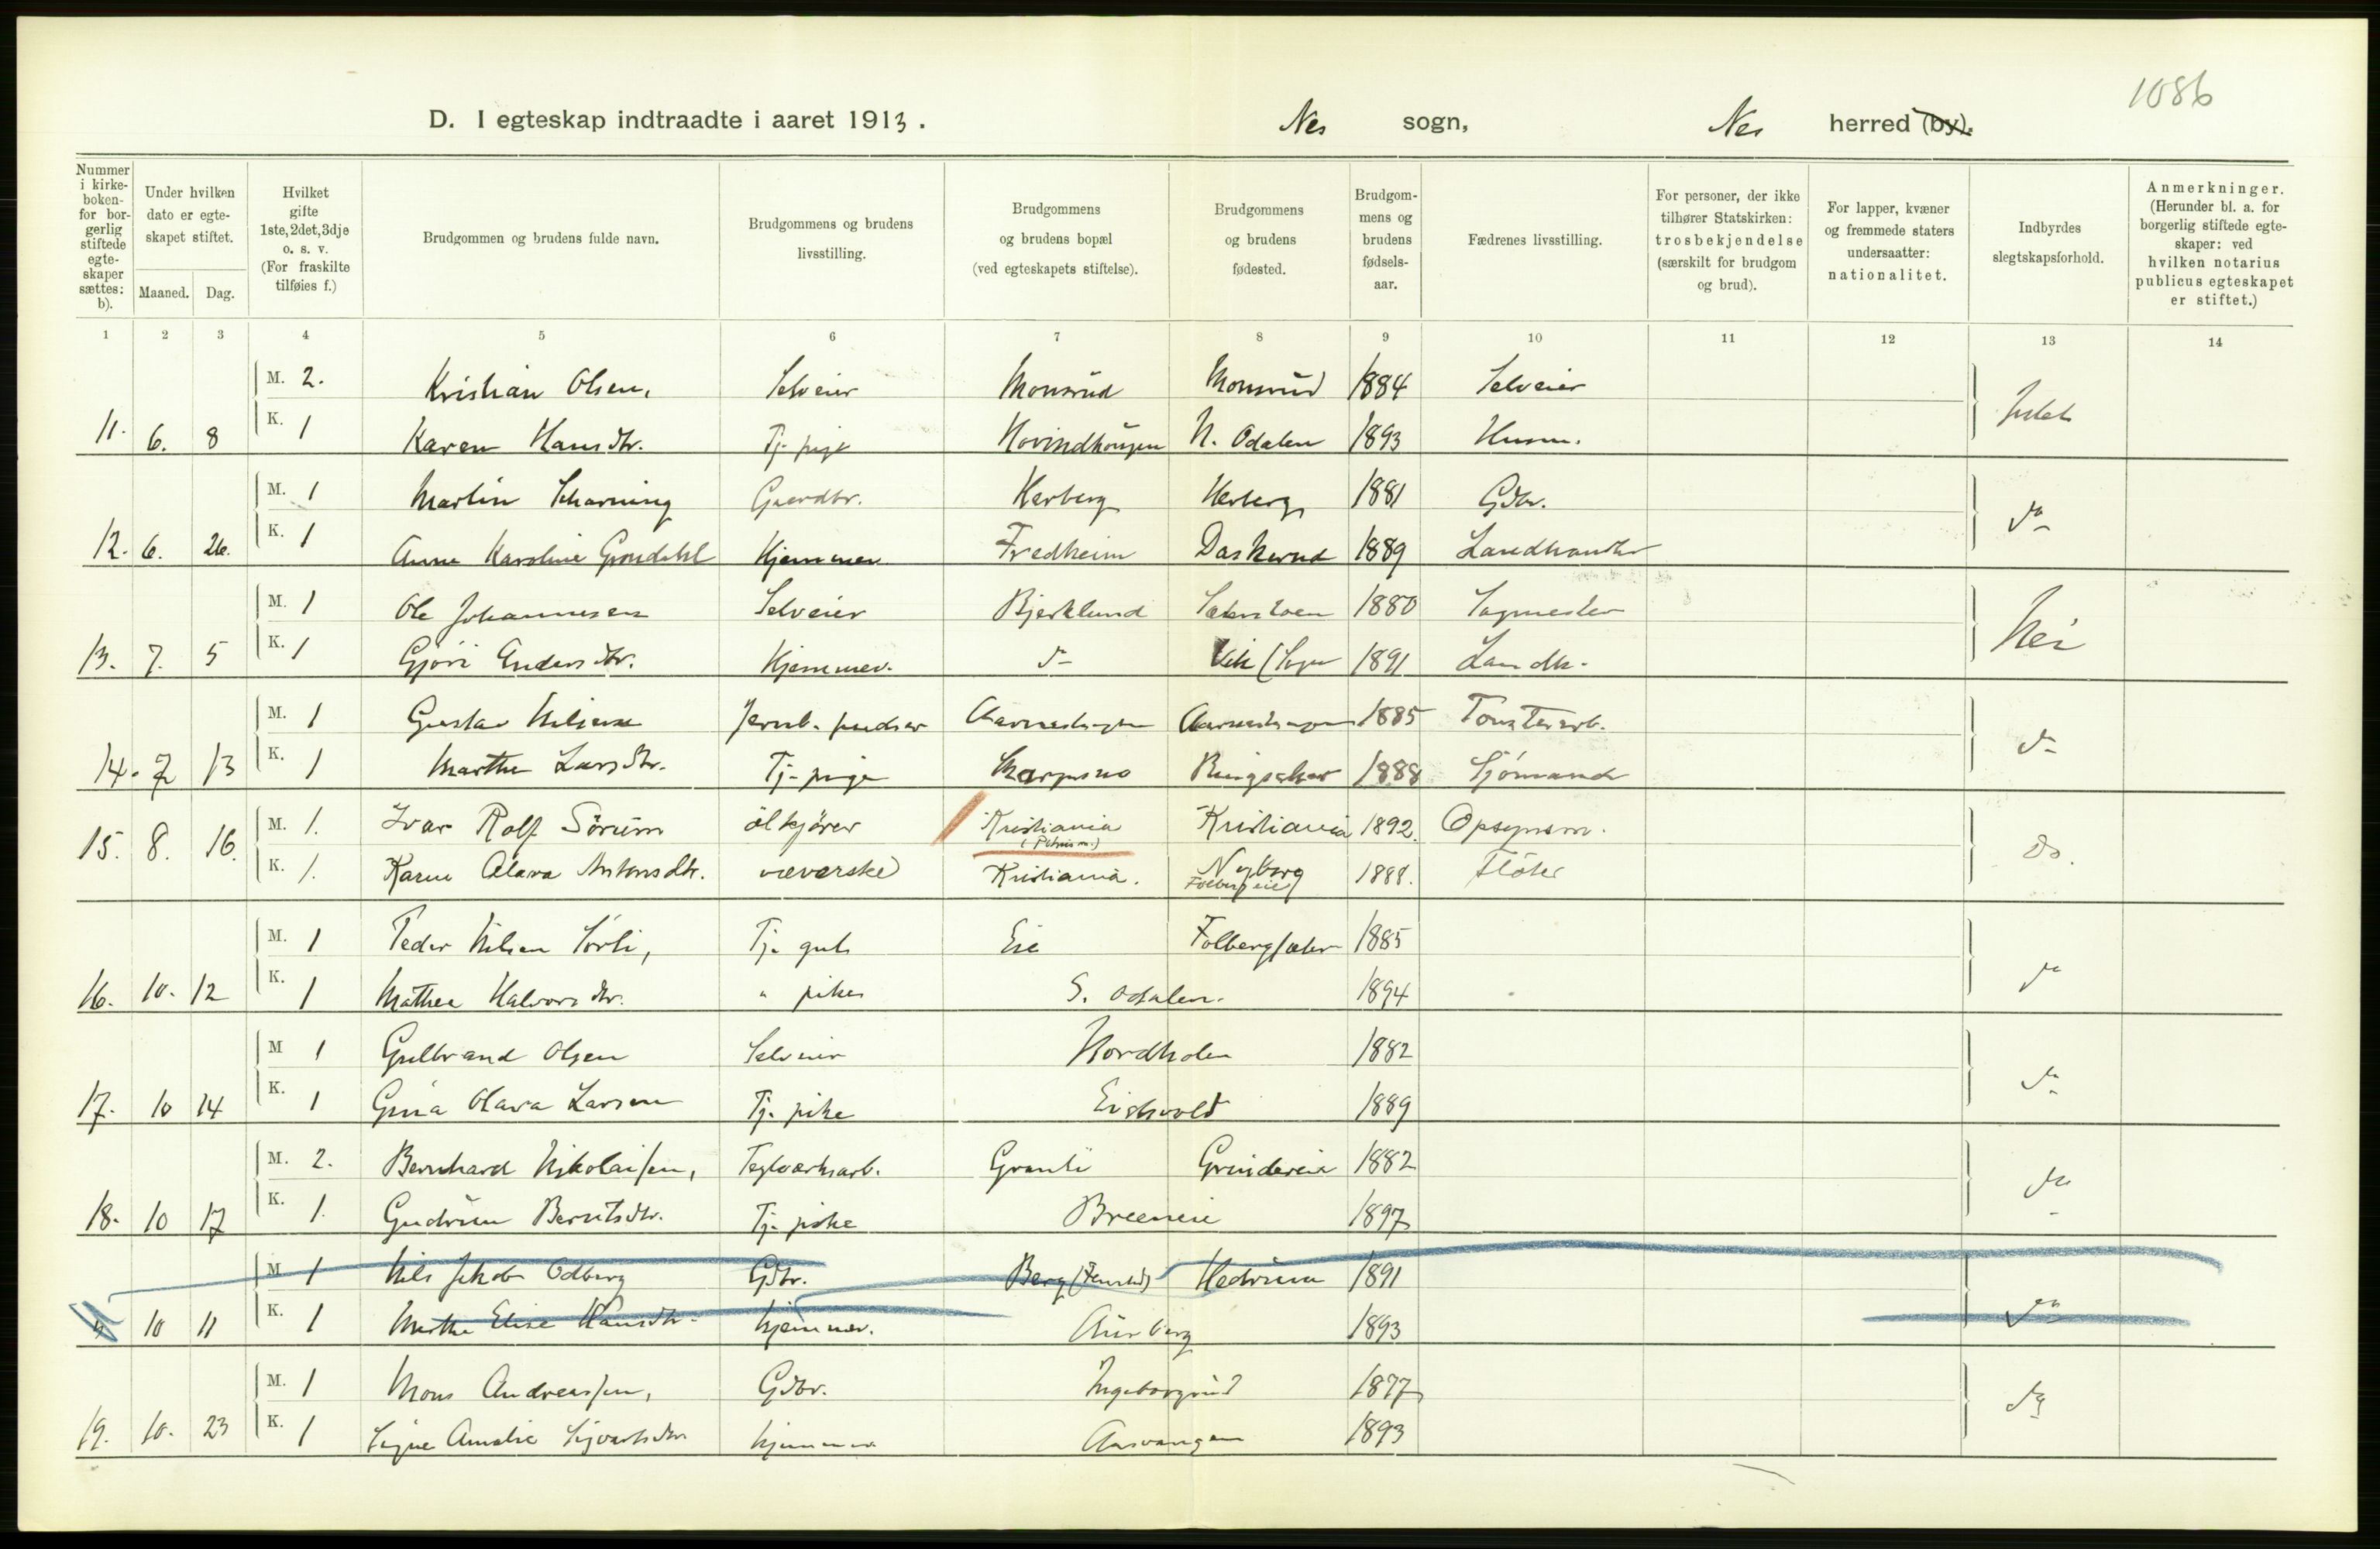 1086
D. I egteskap indtraadte i aaret 1913. Nes sogn, Nes herred (by).
Nummer i kirke-boken- for bor-gerlig stiftede egte-skaper sættes: b).
Under hvilken dato er egte-skapet stiftet.
Maaned. Dag.
Hvilket gifte 1ste, 2det, 3dje o. s. v. (For fraskilte tilføies f.)
Brudgommen og brudens fulde navn.
Brudgommens og brudens livsstilling.
Brudgommens og brudens bopæl (ved egteskapets stiftelse).
Brudgommens og brudens fødested.
Brudgom-mens og brudens fødsels-aar.
Fædrenes livsstilling.
For personer, der ikke tilhører Statskirken: trosbekjendelse (særskilt for brudgom og brud).
For lapper, kvæner og fremmede staters undersaatter: nationalitet.
Indbyrdes slegtskapsforhold.
Anmerkninger. (Herunder bl. a. for borgerlig stiftede egte-skaper: ved hvilken notarius publicus egteskapet er stiftet.)
1 2 3 4 5 6 7 8 9 10 11 12 13 14
M. 2. Kristian Olsen, Selveier Monsrud Monsrud 1884 Selveier
11. 6. 8 K. 1 Karen Hansdtr. Tj. pige Hovindhaugen N. Odalen 1893 Husm. Intet
M. 1 Martin Scharning Gaardbr. Herberg Herberg 1881 Gdbr.
12. 6. 26. K. 1 Anna Karoline Grøndahl Hjemmev. Fredheim Daskerud 1889 Landhandler do
M. 1 Ole Johannesen Selveier Bjerklund 1880 Sagmester
13. 7. 5 K. 1 Gjøri Andersdtr. Hjemmev. do Vik (Sogn 1891 Landh. Nei
M. 1 Gustav Nilsen Jernb. pudser 1885 Tomtearb.
14. 7 13 K. 1 Marthe Larsdtr. Tj. pige Ringsaker 1888 Sjømand do
M. 1. Ivar Rolf Sørum ølkjører Kristiania Kristiania 1892. Opsynsm.
15. 8. 16. K. 1. Karen Olava Antonsdtr. væverske Kristiania. Nyborg Folbergeie 1888. Fløter do.
M. 1 Peder Nilsen Sørli, Tj. gut Eie Folbergsæter 1885
16. 10. 12 K. 1 Mathea Halvorsdtr. " pike S. Odalen. 1894 do
M 1 Gulbrand Olsen Selveier Nordholen 1882
17. 10 14 K. 1 Gina Olava Larsen Tj. pike Eidsvold 1889 do
M. 2. Bernhard Nikolaisen, Teglverksarb. Granli Grindereie 1882
18. 10 17 K. 1. Gudrun Berntsdtr. Tj. pike Breeneie 1897 do
M 1 Nils Jakob Odberg Gdbr. Berg Hedrum 1891
10 11 K. 1 Marthe Elise Hansdtr. hjemmev. Aurberg 1893 do
M. 1 Mons Andreassen, Gdbr. Ingeborgrud 1877
19. 10. 23 K. 1 Signe Amalie Sigvartsdtr. hjemmev Aasvangen 1893 do